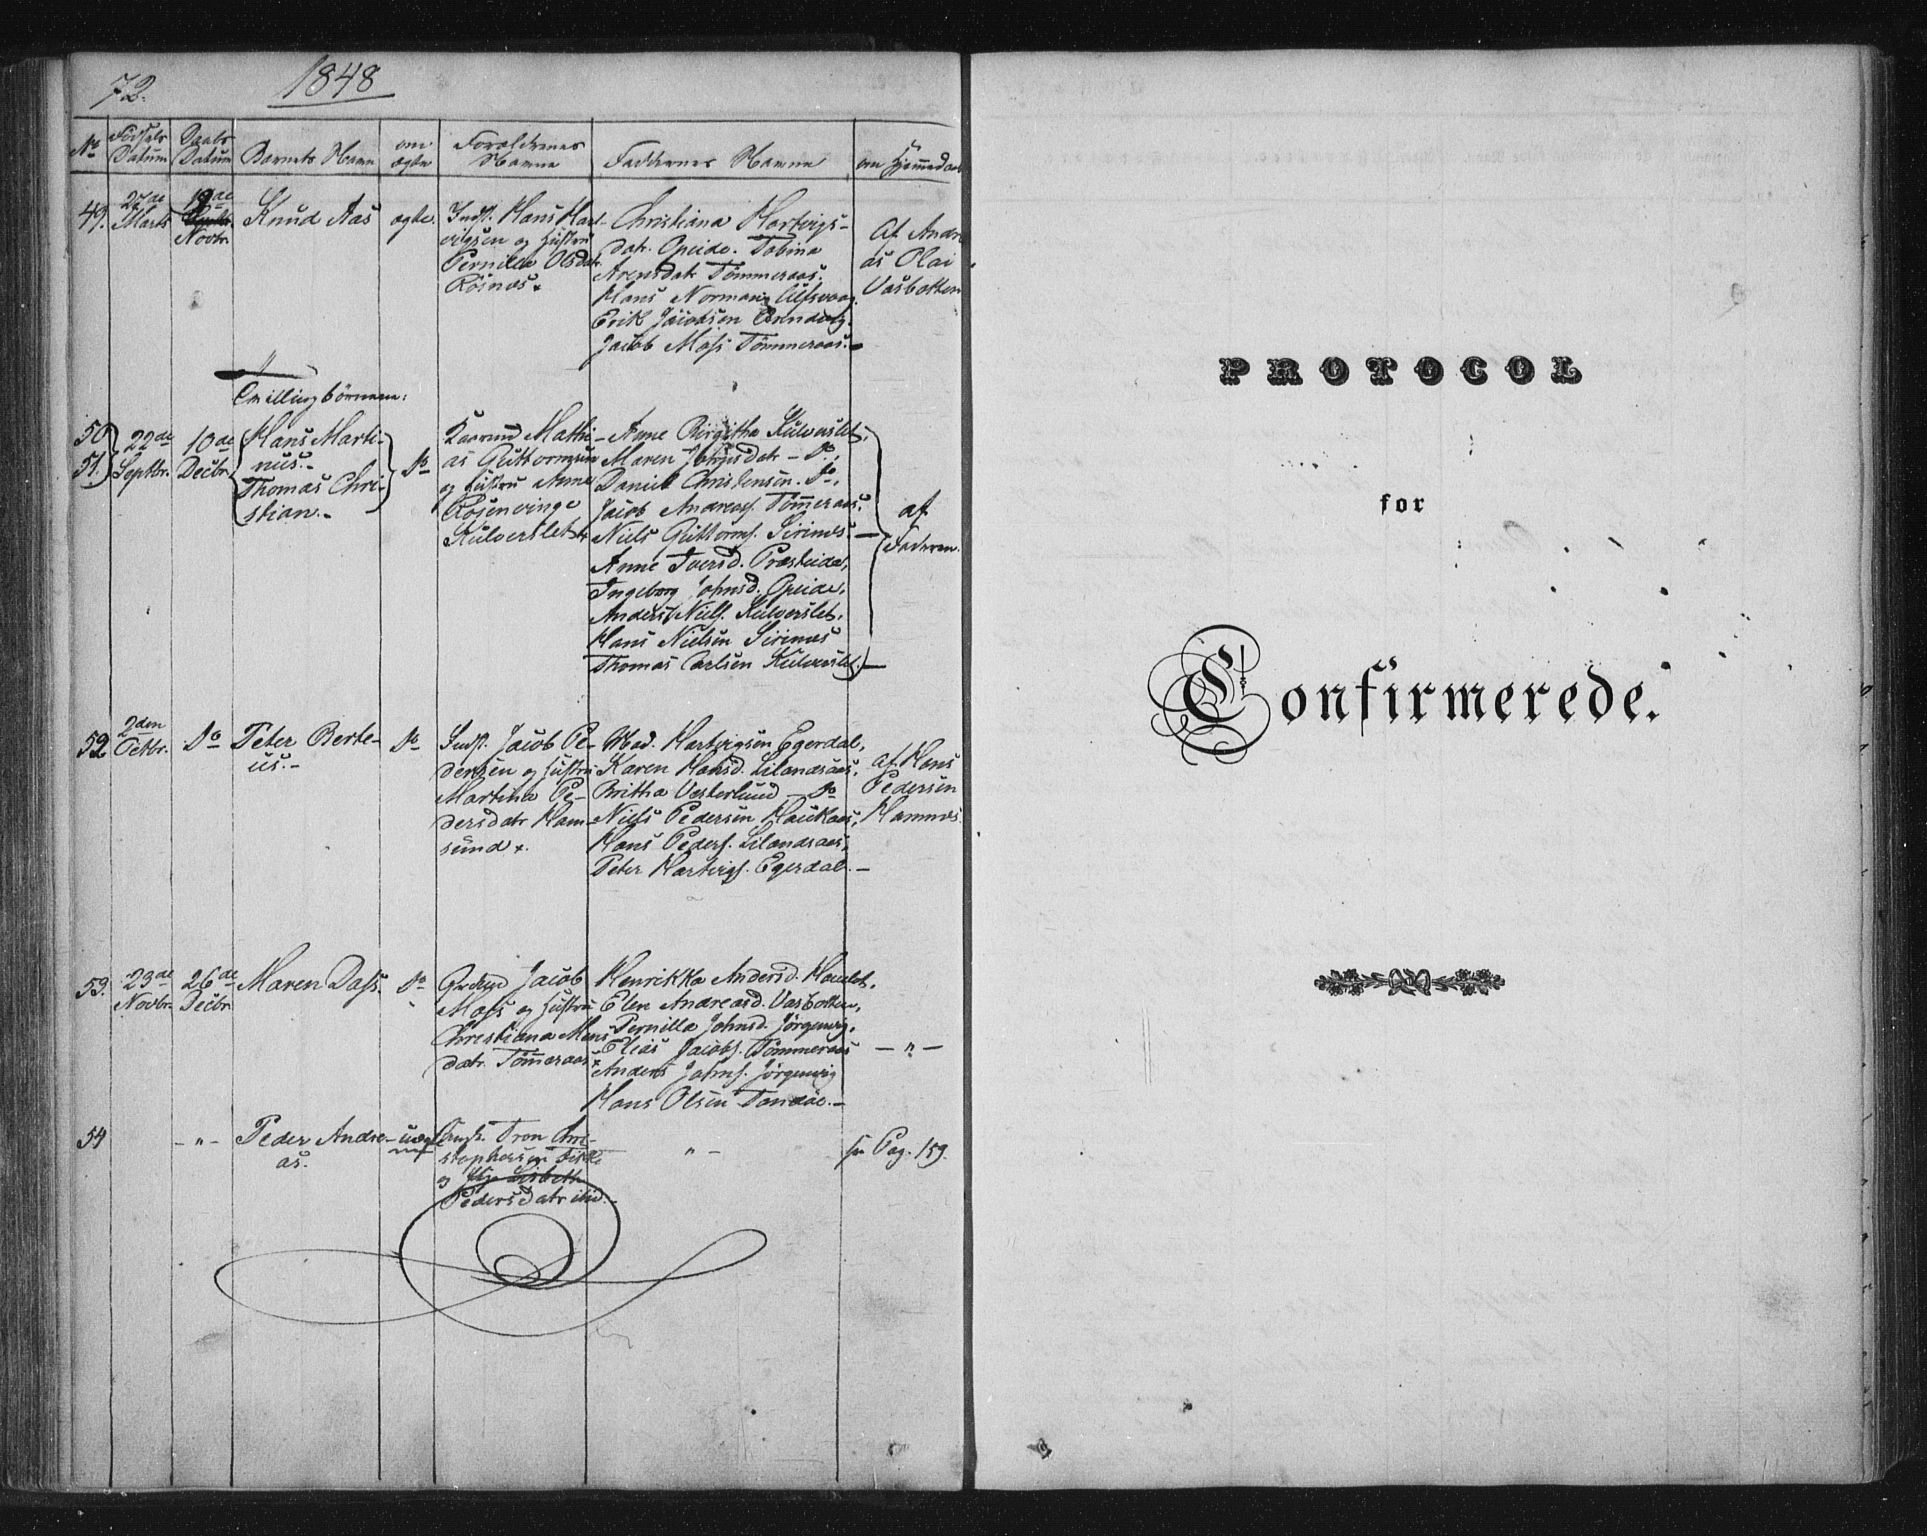 72.
1848
No
Fødsels Datum
Daabs Datum
Barnets Navn
om ægte
Forældrenes Navne
Faddernes Navne
om Hjemmedaab
49.
27de Marts
19de
Novbr.
Knud Aas
ægte.
Indst. Hans Hart-
vigsen og Hustru
Pernilla Olsdatr.
Rösnæs
Christiana Hartvigs-
datr. Opeide. Tobina
Arensdatr Tömmeraas.
Hans Norman
Erik Jacobsen
Jacob Moss Tömmeraas.
Af Andre
as Olai
Vasbotten
Tvillingbörnene:
50
51.
22de
Septbr.
10de
Decbr.
Hans Marti-
nus.
Thomas Chri-
stian.
Do
Gaarmd Matthi-
as Guttormsen
og Hustru Anne
Rosenvinge
Kulverslet
Anne Birgitha Kulverslet,
Maren Johnsdatr Do,
Daniel Christensen. Do.
Jacob Andreass. Tömmeraas.
Niels Guttorms. Sirinæs.
Anne Iversd. Præsteide,
Ingeborg Johnsd. Opeide,
Anders Niels. Kulverslet,
Hans Nielsen Sirinæs
Thomas Carlsen Kulverslet.
af
Faderen.
52
2den
Octbr.
Do
Peter Berte-
us.
Do
Indst. Jacob Pe-
dersen og Hustru
Martina Pe-
dersdatr Ham-
sund
Mad. Hartvigsen Egerdal,
Karen Hansd. Lilandsaas,
Britha Vesterlund Do
Niels Pedersen Haukaas,
Hans Peders. Lilandsaas,
Peter Hartvigs. Egerdal.
af Hans
Pedersen
Hamnes
53.
23de
Novbr.
26de
Decbr.
Maren Dass.
Do
Jacob
Moss og Hustru
Christiana Mons
datr. Tömmeraas
Henrikka Andersd.
Elen Andreasd. Vasbotten,
Pernilla Johnsd. Jörgenvig.
Elias Jacobs. Tömmeraas
Anders Johns. Jörgenvig
Hans Olsen Tannöe.
— " —
54
— " —
Peder Andre-
as.
uægte
Tron Chri-
stophersen
og Lisbeth
Pedersdatr ibid.
" —
Pag. 159.
PROTOCOL
for
Confirmerede.